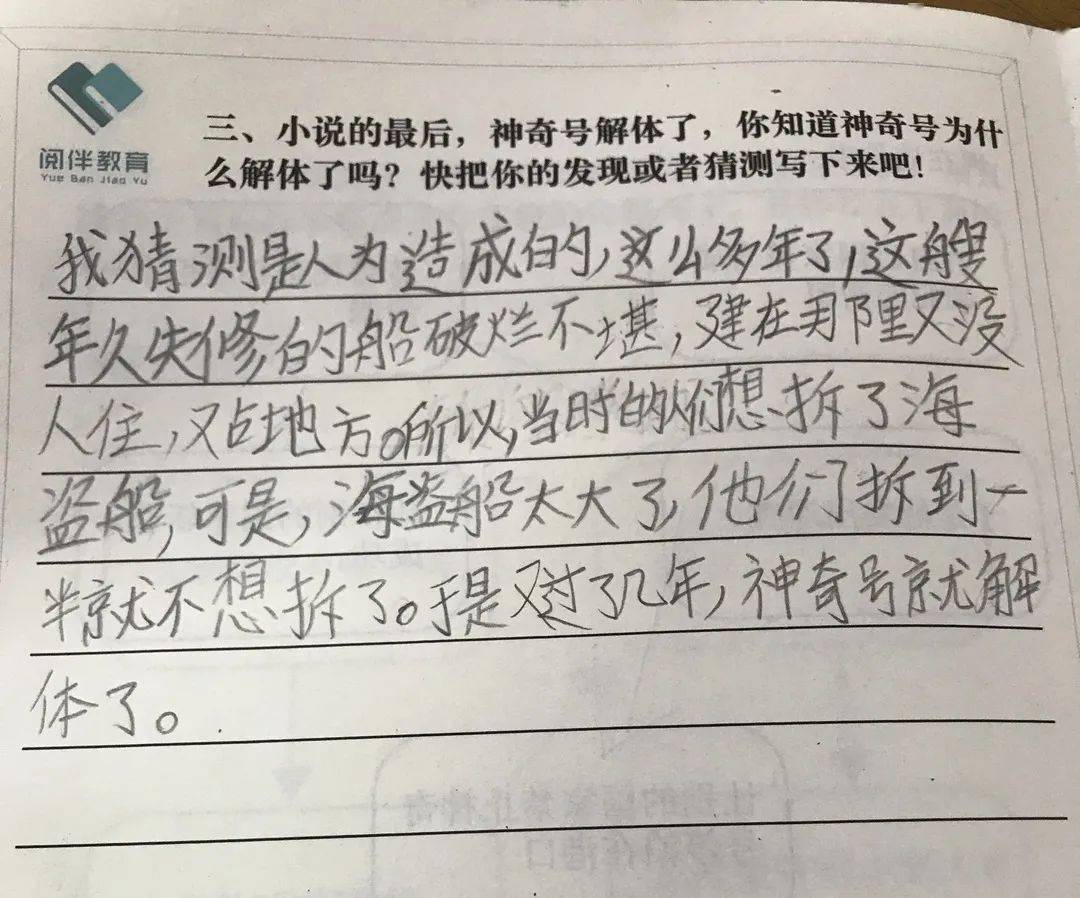 阅伴教育
Yue Ban Jiao Yu
三、小说的最后，神奇号解体了，你知道神奇号为什
么解体了吗？快把你的发现或者猜测写下来吧！
我猜测是人为造成的，这么多年了，这艘
年久失修的船破烂不堪，建在那里又没
人住，又占地方。所以，当时的人们想拆了海
盗船，可是，海盗船太大了，他们拆到一
半就不想拆了。于是又过了几年，神奇号就解
体了。